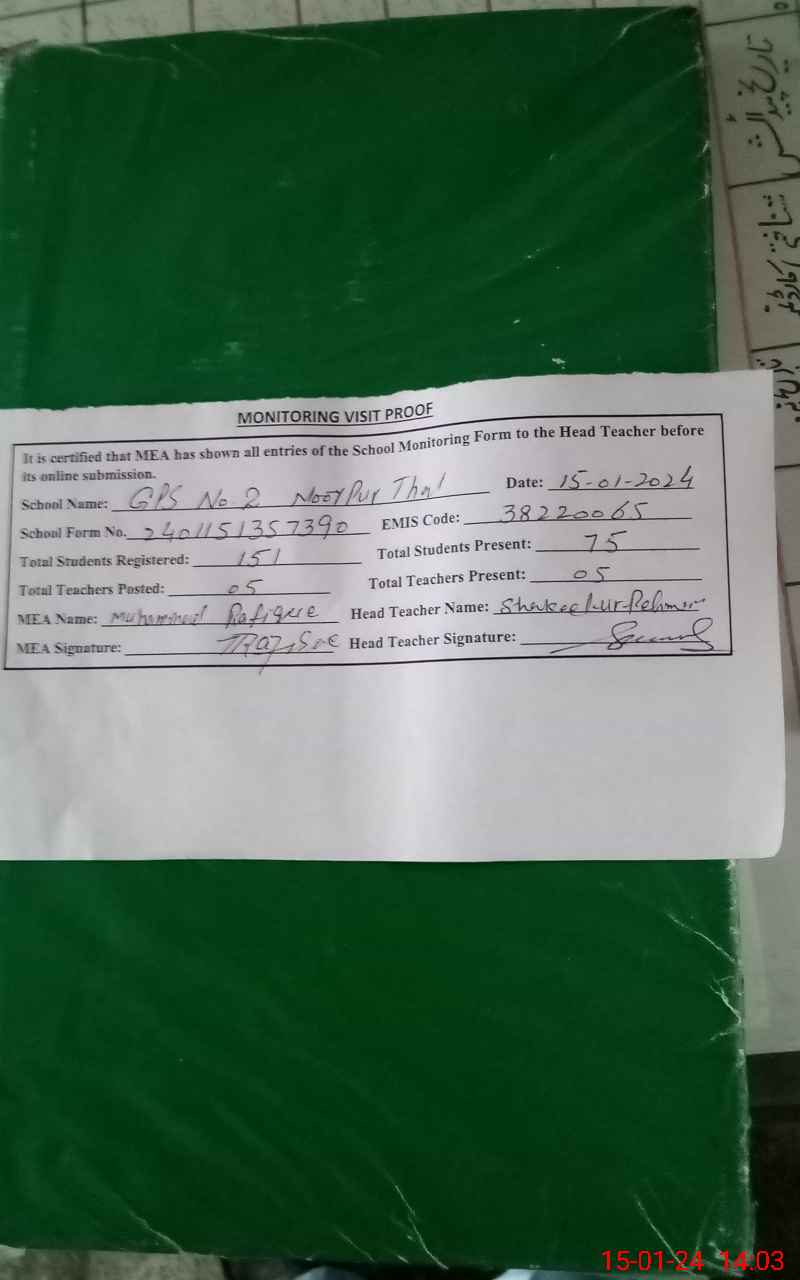 تاریخ پیدائش
شناختی کارڈ نمبر
MONITORING VISIT PROOF
It is certified that MEA has shown all entries of the School Monitoring Form to the Head Teacher before
its online submission.
School Name: GPS No 2 Noor Pur Thal Date: 15-01-2024
School Form No. 2401151357390 EMIS Code: 38220065
Total Students Registered: 151 Total Students Present: 75
Total Teachers Posted: 05 Total Teachers Present: 05
MEA Name: Muhammad Rafique Head Teacher Name: Shakeel-ur-Rehman
MEA Signature: Head Teacher Signature:
15-01-24 14:03